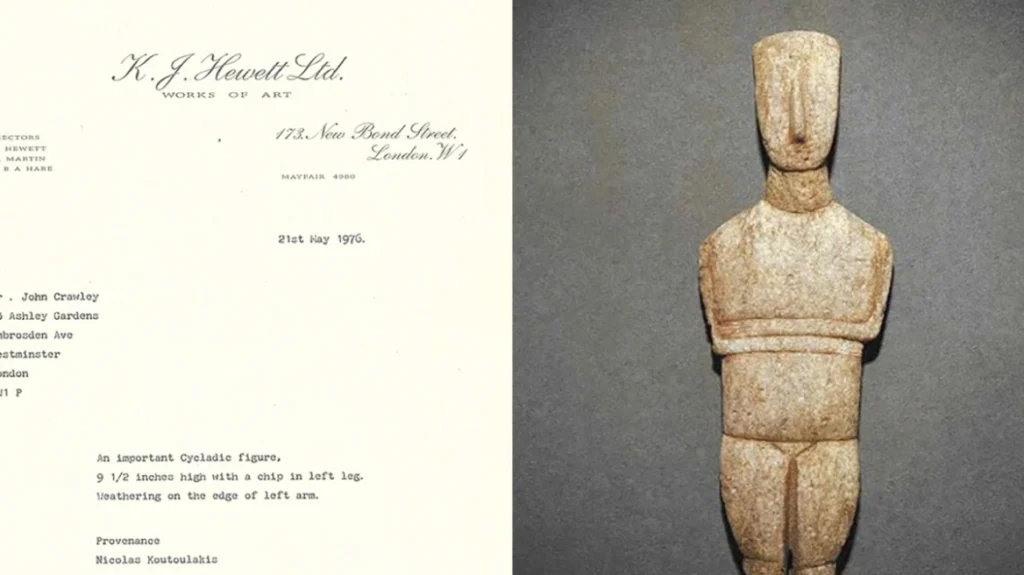 K. J. Hewett Ltd.
WORKS OF ART
173. New Bond Street.
London. W1
MAYFAIR 4980
ECTORS
HEWETT
MARTIN
B A HARE
21st May 1976.
John Crawley
Ashley Gardens
mbrosden Ave
estminster
ondon
P
An important Cycladic figure,
9 1/2 inches high with a chip in left leg.
Weathering on the edge of left arm.
Provenance
Nicolas Koutoulakis